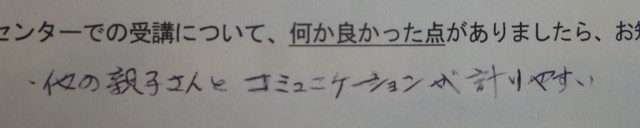 センターでの受講について、何か良かった点がありましたら、お知
・他の親子さんと コミュニケーションが計りやすい